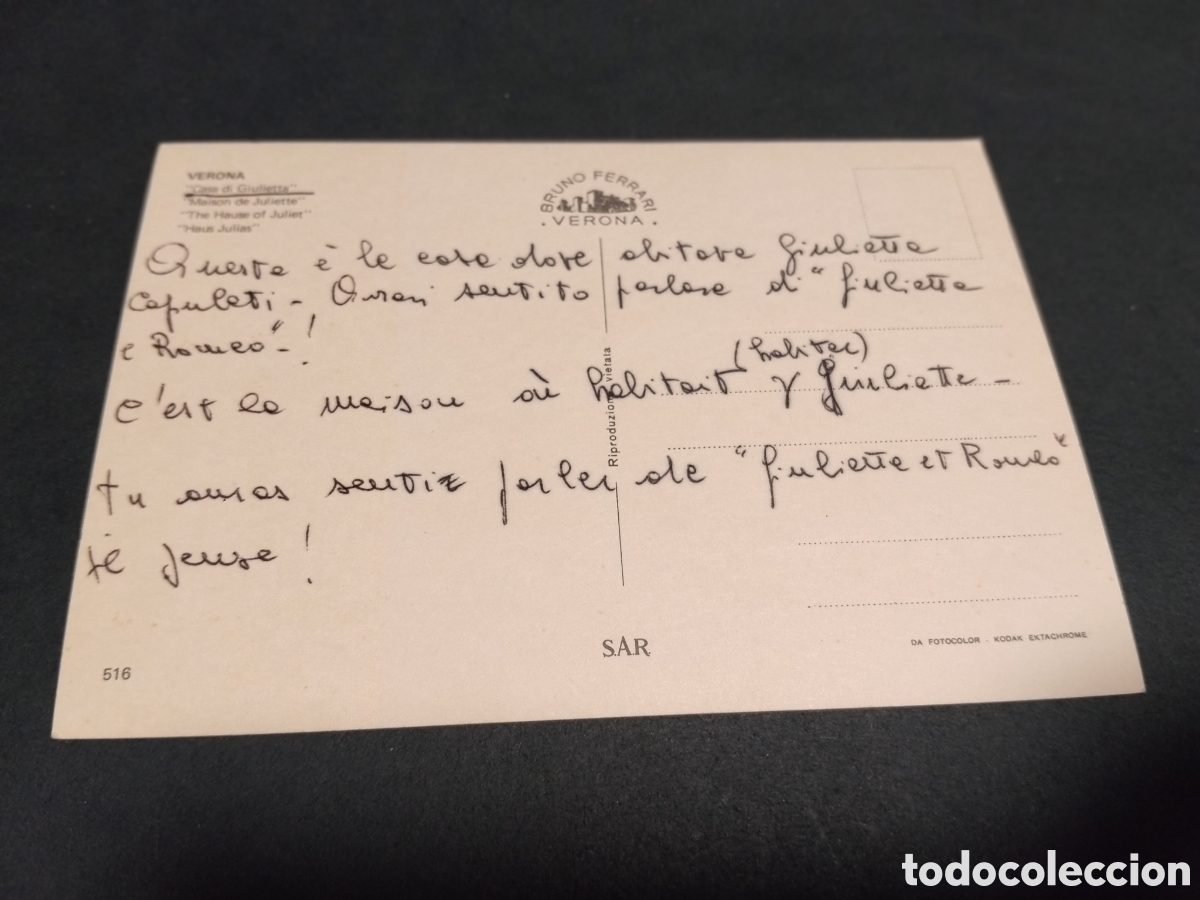 VERONA
"Casa di Giulietta"
"Maison de Juliette"
"The Hause of Juliet"
"Haus Julias"
BRUNO FERRARI
. VERONA .
Questa è la casa dove abitava Giulietta
Capuleti - Avrai sentito parlare di "Giulietta
e Romeo" - !
(habiter)
C'est la maison où habitait y Giuliette -
tu auras sentir parler de "Giuliette et Romeo"
je pense !
Riproduzione vietata
S.A.R.
516
DA FOTOCOLOR - KODAK EKTACHROME
todocoleccion